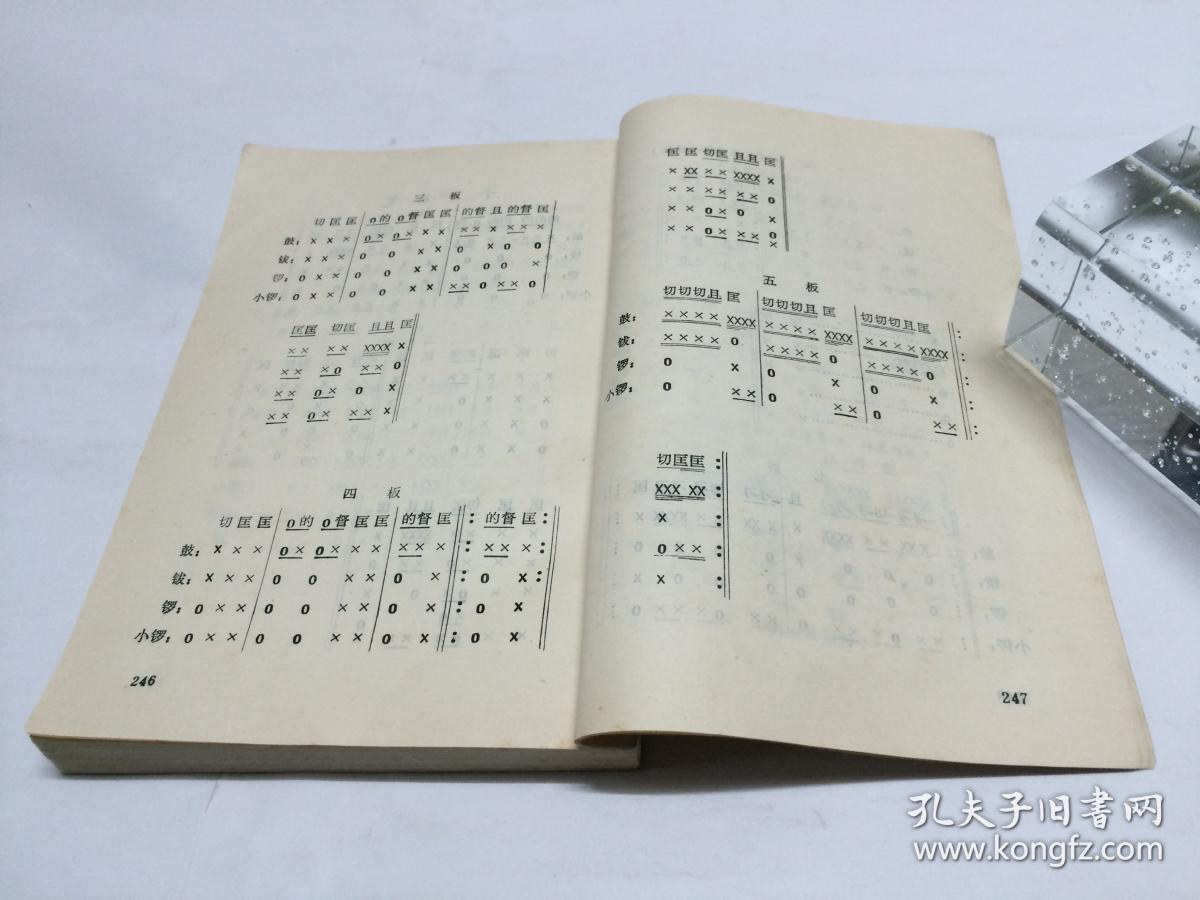 三 板
切 匡 匡 0的 0督 匡 匡 的督 且 的督 匡
鼓: × × × 0× 0× × × ×× × ×× ×
钹: × × × 0 0 × × 0 × 0 0
锣: 0 × × 0 0 × × 0 0 0 ×
小锣: 0 × × 0 0 × × ×× 0 ×× 0
匡匡 切匡 且且 匡
×× ×× ×××× ×
×× ×0 ×× 0
×× 0× 0 ×
×× 0× ×× ×
四 板
切 匡 匡 0的 0督 匡 匡 的督 匡 : 的督 匡 :
鼓: × × × 0× 0× × × ×× × : ×× × :
钹: × × × 0 0 × × 0 × : 0 × :
锣: 0 × × 0 0 × × 0 × : 0 ×
小锣: 0 × × 0 0 × × 0 × : 0 ×
246
匡 匡 切匡 且且 匡
× ×× ×× ×××× ×
× × ×× ×× 0
× × 0× 0 ×
× × 0× ×× ×
五 板
切切切且 匡 切切切且 匡 切切切且 匡 :
鼓: ×××× ×××× ×××× ×××× ×××× ××××
钹: ×××× 0 ×××× 0 ×××× 0
锣: 0 × 0 × 0 ×
小锣: 0 ×× 0 ×× 0 ×× :
切匡匡 :
××× ×× :
×
0××
× :
247
孔夫子旧书网
www.kongfz.com